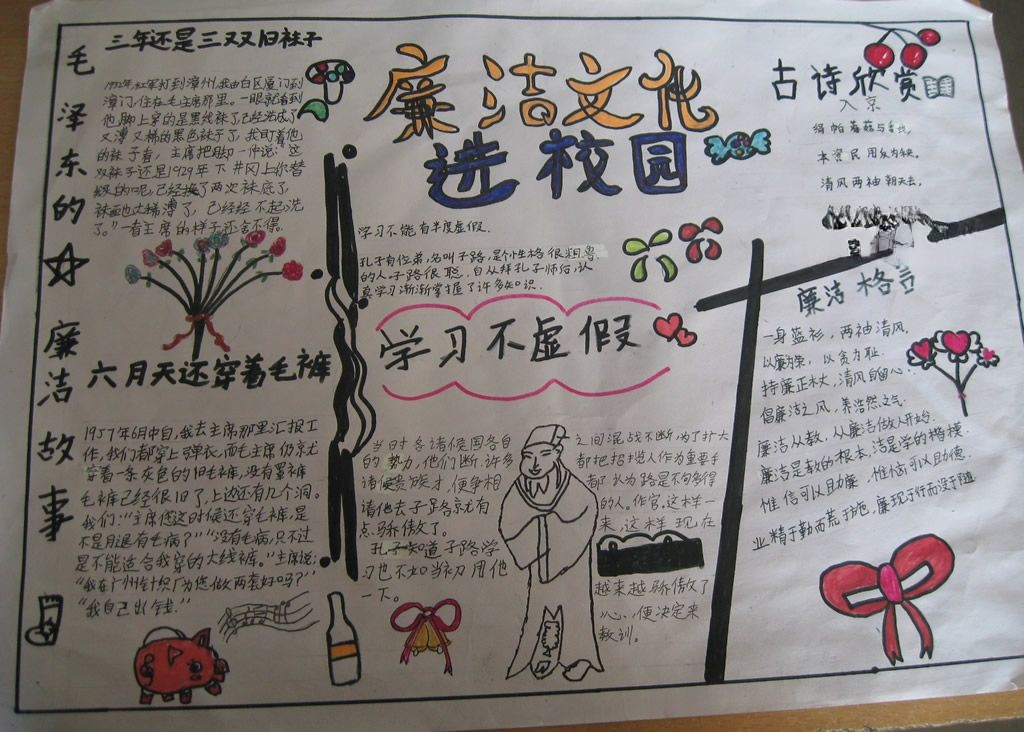 毛泽东的
廉洁故事
三年还是三双旧袜子
1932年,红军打到漳州,我由白区厦门到
漳门,住在毛主席那里。一眼就看到
他脚上穿的是黑线袜了已经洗成了
又薄又稀的黑色袜子了,我盯着他
的袜子看,主席把脚一伸说:"这
双袜子还是1929年下井冈上你替
的呢,已经换了两次袜底了,
袜面也太稀薄了,已经经不起洗
了。"看主席的样子还舍不得
六月天还穿着毛裤
1957年6月中旬,我去主席那里汇报工
作,我们都穿上单衣,而毛主席仍京尤
穿着一条灰色的旧毛裤,没有罩裤
毛裤已经很旧了,上边还有几个洞。
我们:"主席您这时候还穿毛裤,是
不是月退有毛病?""没有毛病,只不过
是不能适合我穿的大线裤。"主席说:
"我在广州针织厂为您做两套好吗?"
"我自己出钱。"
廉洁文化
进校园
学习不能有半虚假.
孔子有位弟,名叫子路,是个性格很粗鲁
的人,子路很聪,自从拜孔子师后,认
真学习渐渐掌握了许多知识.
学习不虚假
当时各诸侯国各自
的势力,他们断,许多
诸侯贵族才,便争相
请他去子路京尤有
点骄傲了。
孔子知道子路学
习也不如当初用他
一下。
之间混战不断,为了扩大
都把招揽人作为重要手
都认为路是不句多得
的人。作官,这样一
来,这样现在
越来越骄傲了
心、便决定来
教训。
古诗欣赏
入京
绢帕蘑菇与线香,
本资民用反为殃。
清风两袖朝天去,
廉洁格言
一身蓝衫,两袖清风.
以廉为荣,以贪为耻.
持廉正木大,清风自留心.
倡廉洁之风,养浩然之气.
廉洁从教,从廉洁做人开始.
廉洁是教的根本,洁是学的楷模.
惟俭可以助廉,惟恕可以助德.
业精于勤而荒于嬉,廉现于行而没于随